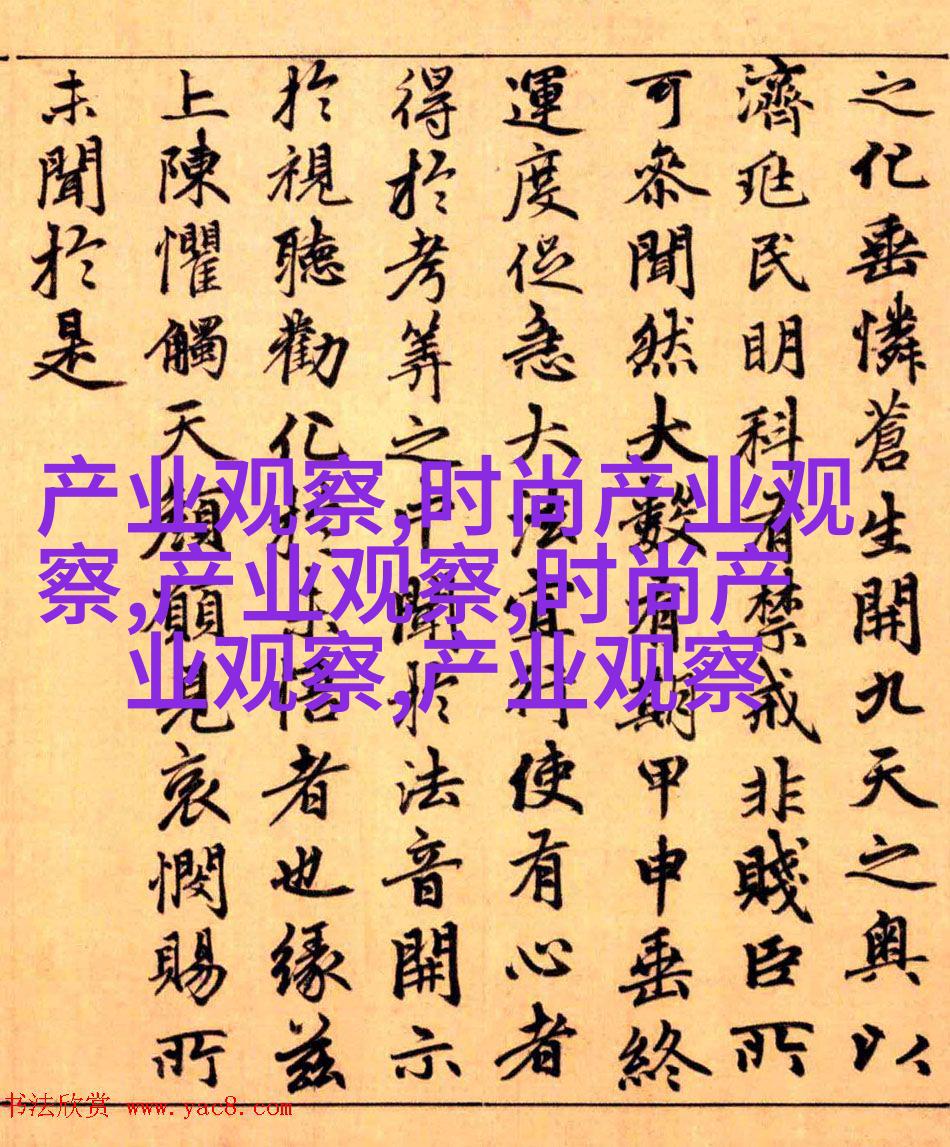 之化垂憐蒼生開九天之奥以
濟兆民明科有禁戒非賤臣所
可叅聞然大數有期甲申垂終
運度促急大法宜行使有心者
得於考筭之中聞於法音開示
於視聽勸化於未悟者也緣茲
上陳懼觸天顔願見哀憫賜所
未聞於是
产业观察,时尚产业观
察,产业观察,时尚产
业观察,产业观察
书法欣赏 www.yac8.com